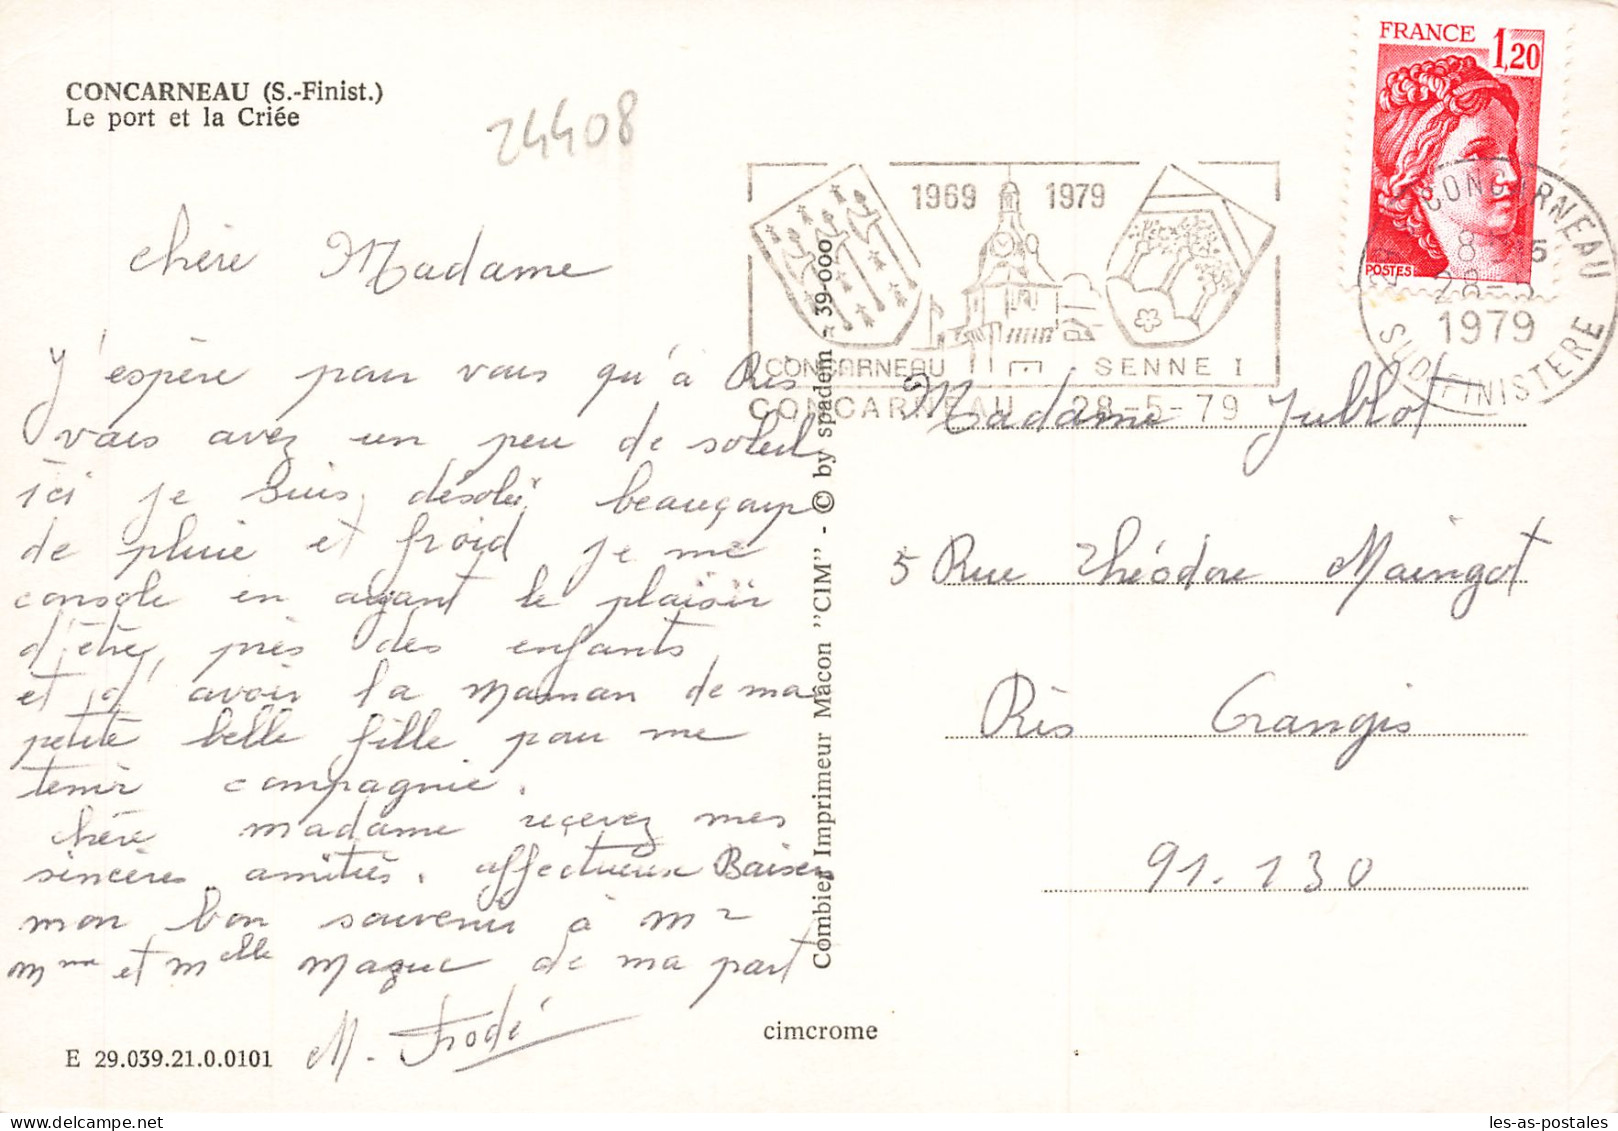 CONCARNEAU (S.-Finist.)
Le port et la Criée
24408
FRANCE 1,20
POSTES
1969 1979
CONCARNEAU SENNE I
CONCARNEAU 28-5-79
CONCARNEAU
28-5
1979
SUD FINISTERE
chère Madame
J'espère pour vous qu'à Ris
vous avez un peu de soleil
ici je suis désolée beaucoup
de pluie et froid je me
console en ayant le plaisir
d'être près des enfants
et d'avoir la maman de ma
petite belle fille pour me
tenir compagnie.
chère madame recevez mes
sincères amitiés. affectueux Baisers
mon bon souvenir à Mr
Mme et Melle Mazue de ma part
M. Frodé
Combier Imprimeur Mâcon "CIM" - © by spadem - 39-000
Madame Jublot
5 Rue Théodore Maingot
Ris Grangis
91.130
E 29.039.21.0.0101
cimcrome
les-as-postales